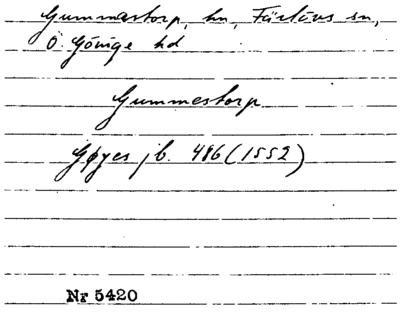 Gummastorp, hn, Färlövs sn,
Ö. Göinge hd
Gummestorp
Gøyes jb. 486 (1552)
Nr 5420